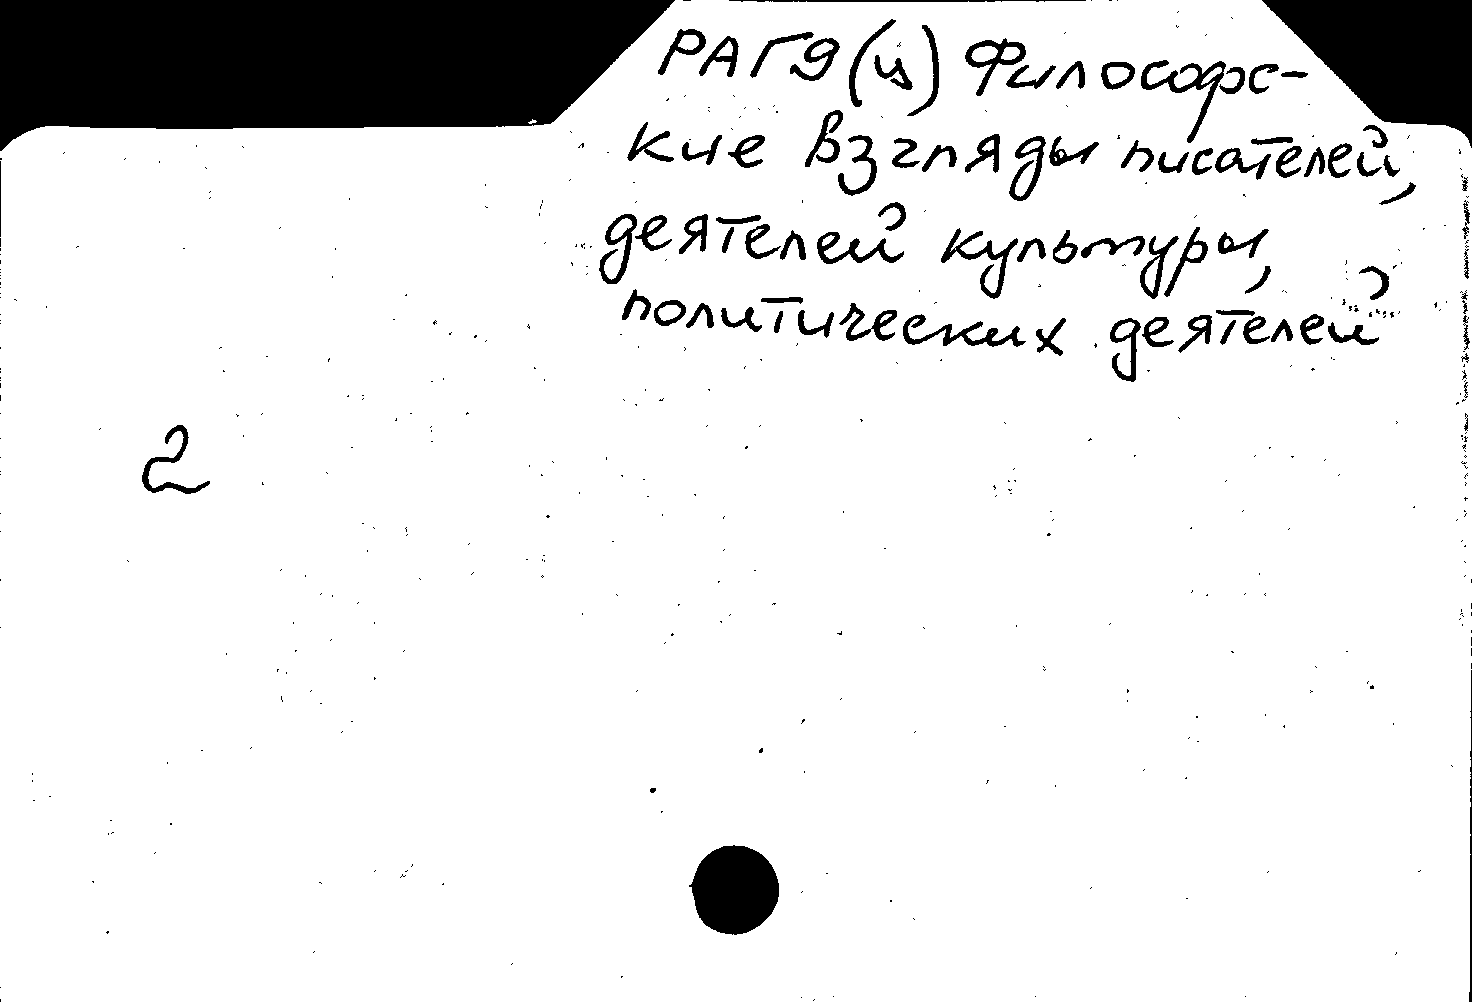 РАГ9(ц) Философс-
кие взгляды писателей,
деятелей культуры,
политических деятелей
2